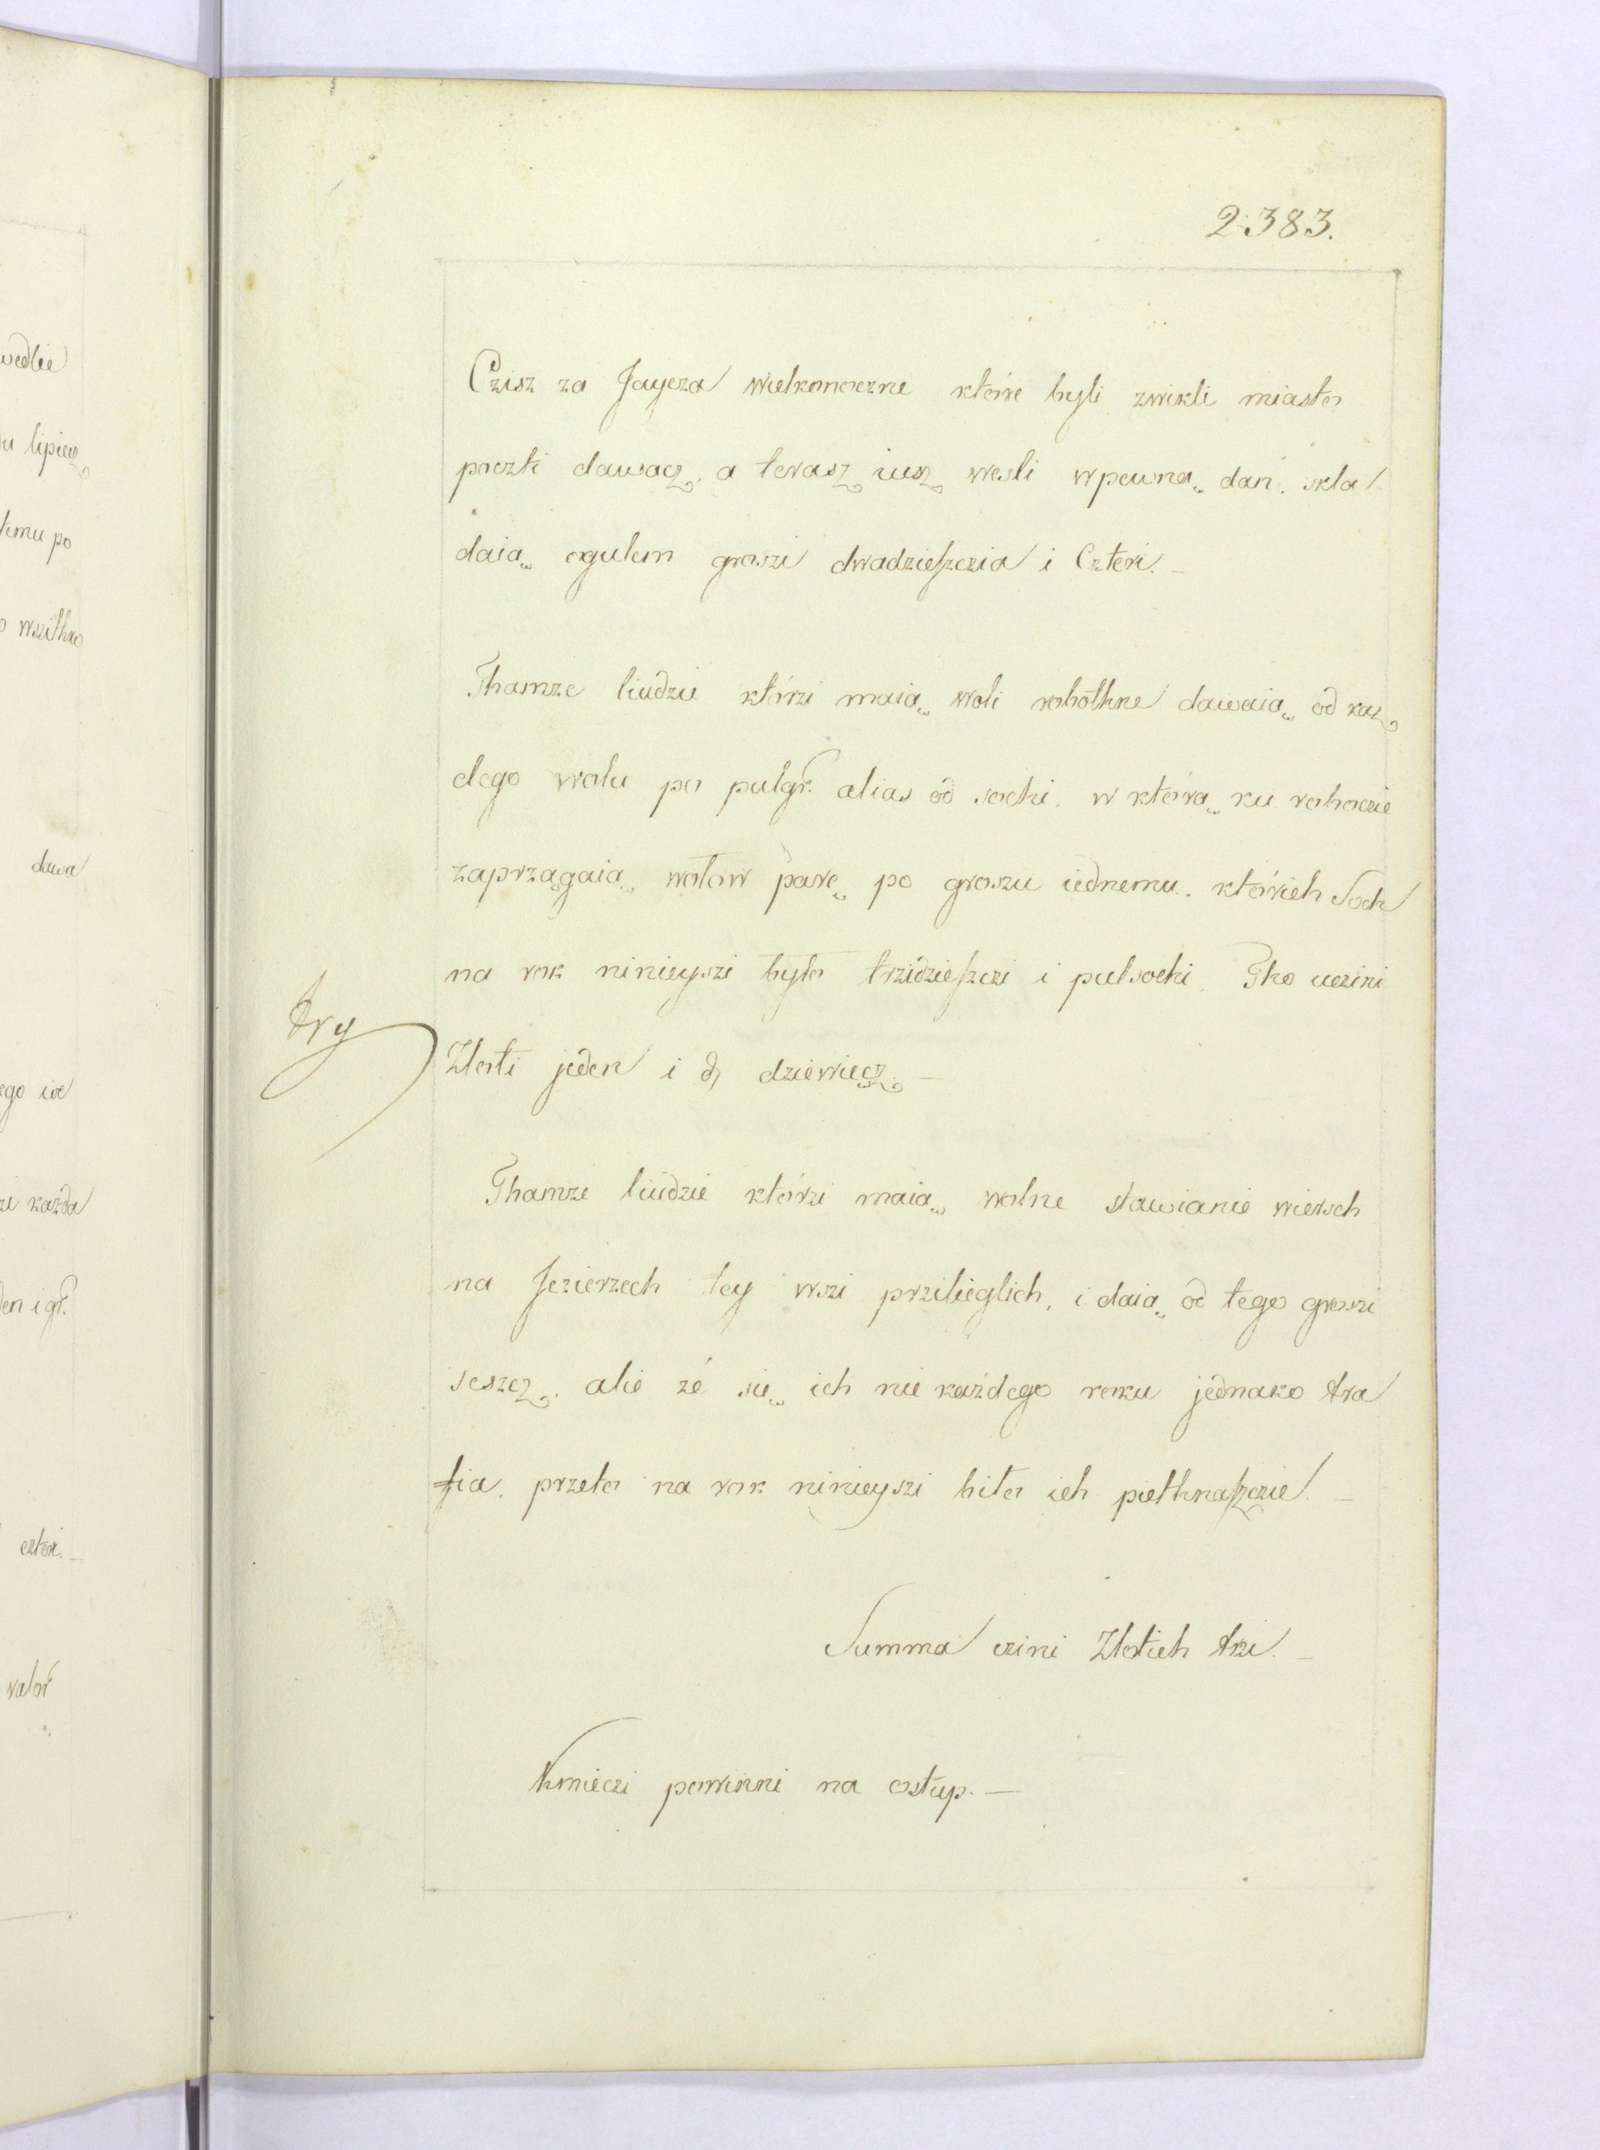 2383.
Czisz za Jaycza wielkonoczne które byli zwikli miasto
poczti dawacz, a terasz iusz weśli w pewną dań. skla
daią ogulem groszi dwadzieszczia i Czteri. —
Thamze liudzie którzi maią woli robothne dawaią od kaz
dego wolu po pulgr. alias od sochi. w którą ku roboczie
zaprzągaią wołow parę po groszu iednemu. którich Soch
na rok ninieyszi było trzidzieszczi i pulsochi. Tho uczini
Złoti jeden i ₰ dziewięcz. —
try
Thamze liudzie którzi maią wolne stawianie wiersch
na Jezierzech tey wszi przilieglich, i daią od tego groszi
seszcz, alie zé się ich nie każdego roku jednako tra
fia. przeto na rok ninieyszi biło ich piethnaszczie. —
Summa czini Złotich trzi. —
Kmieczi powinni na ostup. —
wedlie
lipiecz
temu po
wszithko
dawa
każda
czteri. —